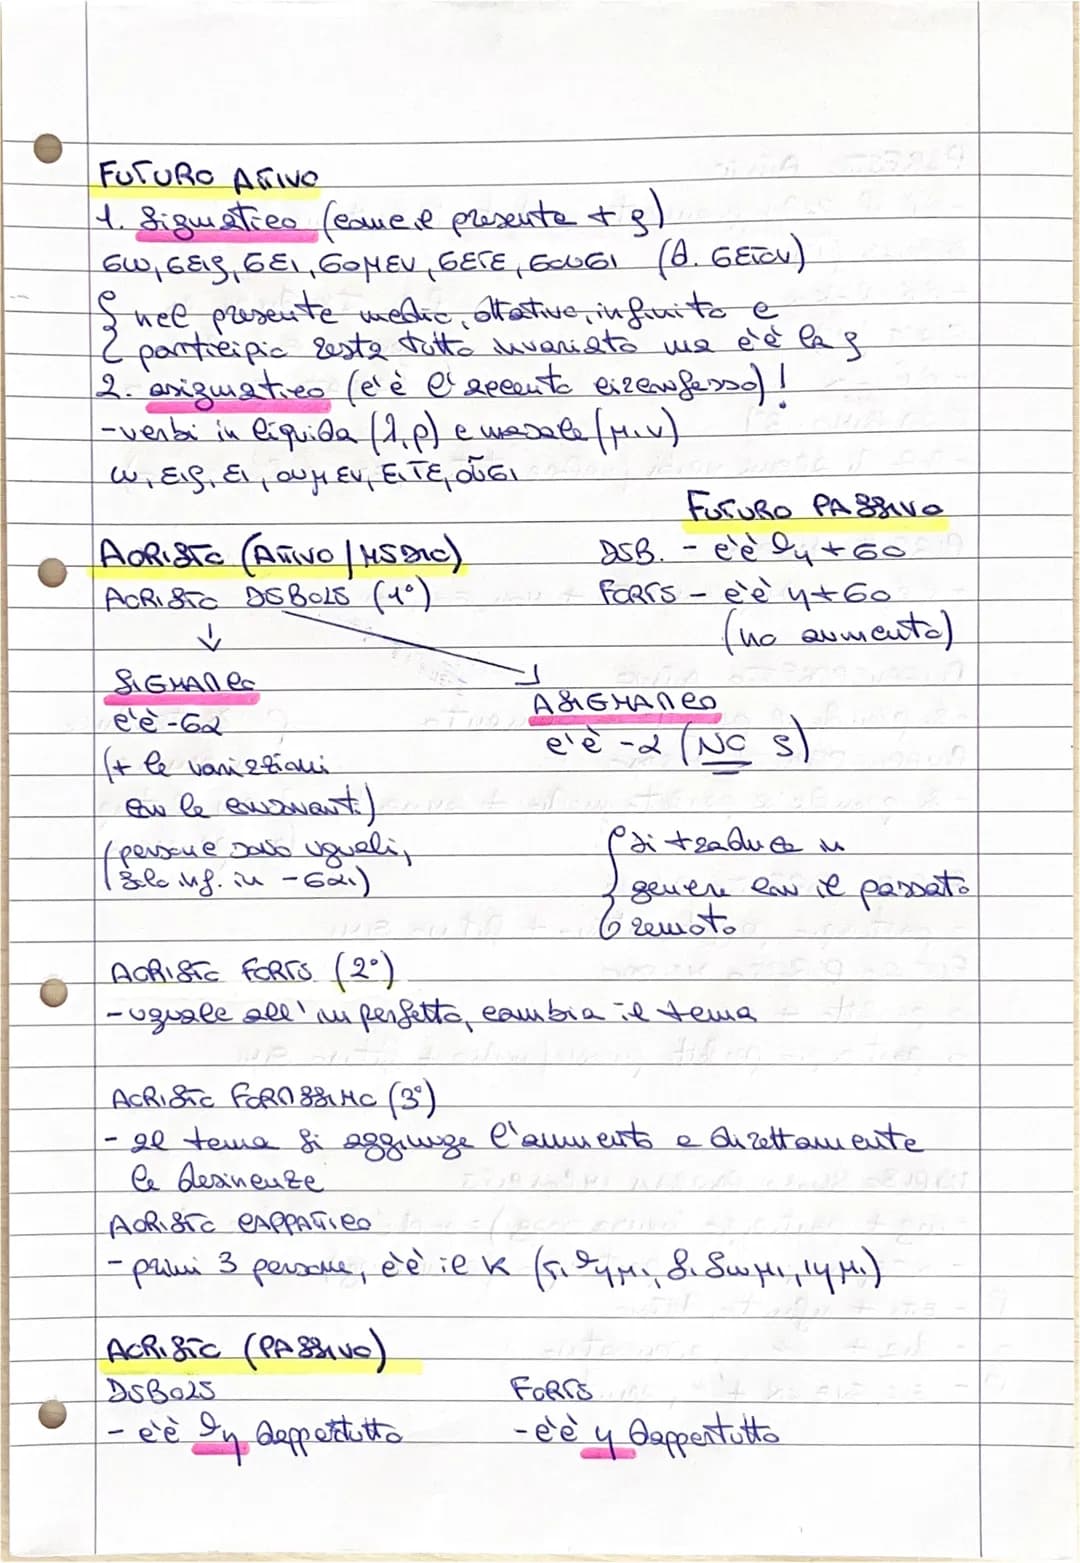 FUTURO ATTIVO
1. Sigmatico (come il presente + ς)
σω, σεις, σει, σομεν, σετε, σουσι (D. σετον)
nel presente medio, ottativo, infinito e
participio resta tutto invariato ma c'è la ς
2. asigmatico (c'è l'accento circonflesso)!
- verbi in liquida (λ, ρ) e nasale (μ, ν)
ω, εις, ει, ουμεν, ειτε, οῦσι
FUTURO PASSIVO
DEB. - c'è θη + σο
FORTE - c'è η + σο
(no aumento)
AORISTO (ATTIVO / MEDIO)
AORISTO DEBOLE (1°)
↓
SIGMATICO
c'è -σα
(+ le variazioni
con le consonanti)
(persone sono uguali,
solo inf. in -σαι)
ASIGMATICO
c'è -α (NO ς)
si traduce in
genere con il passato
remoto
AORISTO FORTE (2°)
- uguale all'imperfetto, cambia il tema
AORISTO FORTISSIMO (3°)
- al tema si aggiunge l'aumento e direttamente
le desinenze
AORISTO CAPPATICO
- primi 3 persone, c'è il κ (τιθημι, διδωμι, ιημι)
AORISTO (PASSIVO)
DEBOLE
- c'è θη dappertutto
FORTE
- c'è η dappertutto